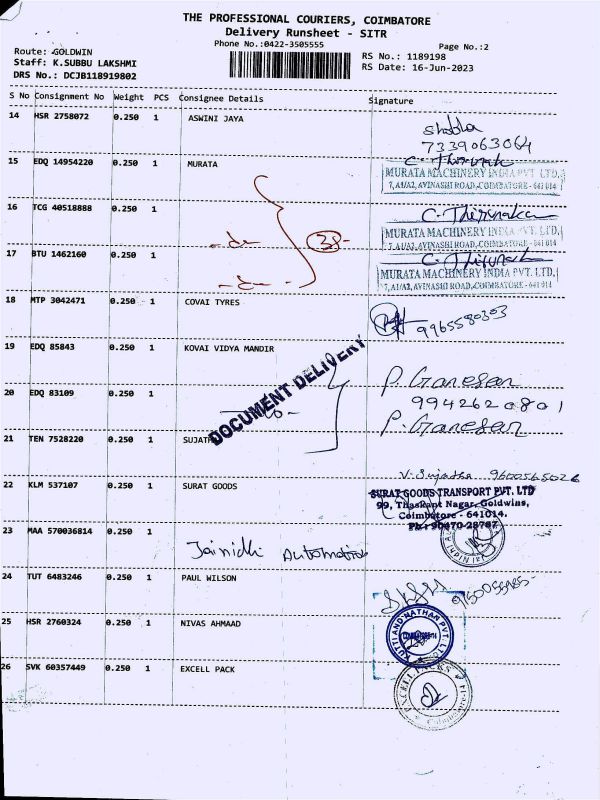 THE PROFESSIONAL COURIERS, COIMBATORE
Delivery Runsheet - SITR
Phone No.:0422-3505555
Page No.:2
Route: GOLDWIN
Staff: K.SUBBU LAKSHMI
DRS No.: DCJB118919802
RS No.: 1189198
RS Date: 16-Jun-2023
S No Consignment No Weight PCS Consignee Details Signature
14 HSR 2758072 0.250 1 ASWINI JAYA
7339063064
15 EDQ 14954220 0.250 1 MURATA
MURATA MACHINERY INDIA PVT. LTD.,
7, A1/A2, AVINASHI ROAD, COIMBATORE - 641 014
16 TCG 40518888 0.250 1
38-
MURATA MACHINERY INDIA PVT. LTD.,
7, A1/A2, AVINASHI ROAD, COIMBATORE - 641 014
17 BTU 1462160 0.250 1
MURATA MACHINERY INDIA PVT. LTD.,
7, A1/A2, AVINASHI ROAD, COIMBATORE - 641 014
18 MTP 3042471 0.250 1 COVAI TYRES
9965580303
19 EDQ 85843 0.250 1 KOVAI VIDYA MANDIR
P. Ganesan
DOCUMENT DELIVERY
20 EDQ 83109 0.250 1
9942620801
P. Ganesan
21 TEN 7528220 0.250 1 SUJATHA
V. Sujatha 9600565026
22 KLM 537107 0.250 1 SURAT GOODS
SURAT GOODS TRANSPORT PVT. LTD
99, Thaskant Nagar, Goldwins,
Coimbatore - 641014.
23 MAA 570036814 0.250 1
Jainidhi Automation
24 TUT 6483246 0.250 1 PAUL WILSON
25 HSR 2760324 0.250 1 NIVAS AHMAAD
26 SVK 60357449 0.250 1 EXCELL PACK
EXCELL PACKS